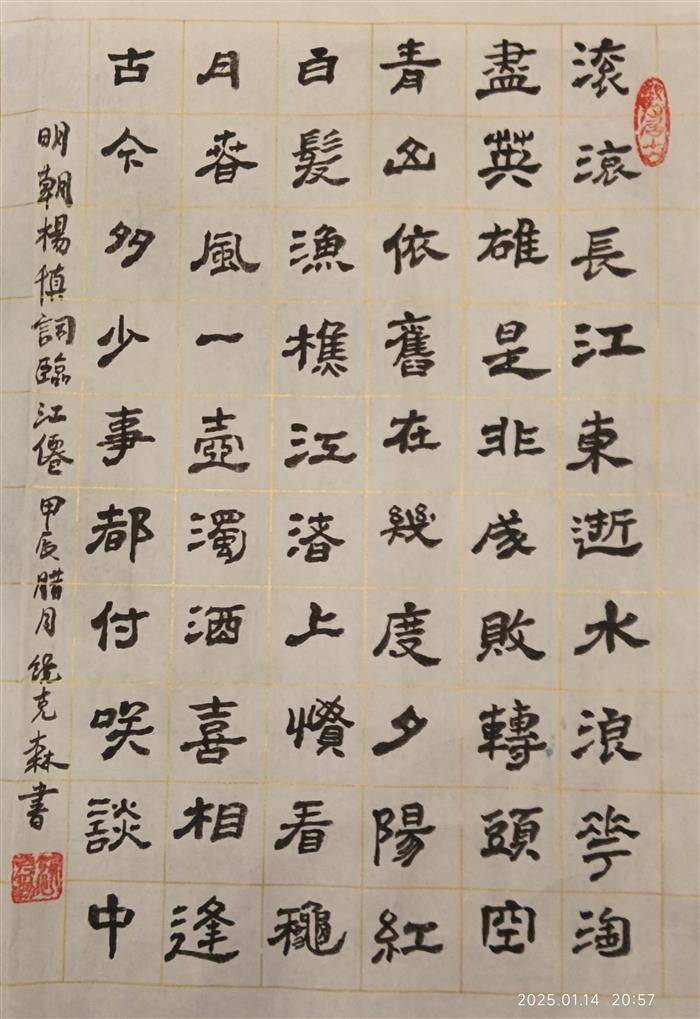 滚滚長江東逝水浪花淘
盡英雄是非成敗轉頭空
青山依舊在幾度夕陽紅
白髮漁樵江渚上慣看龝
月春風一壺濁酒喜相逢
古今多少事都付咲談中
明朝楊慎詞臨江僊 甲辰腊月 克森書
2025.01.14 20:57